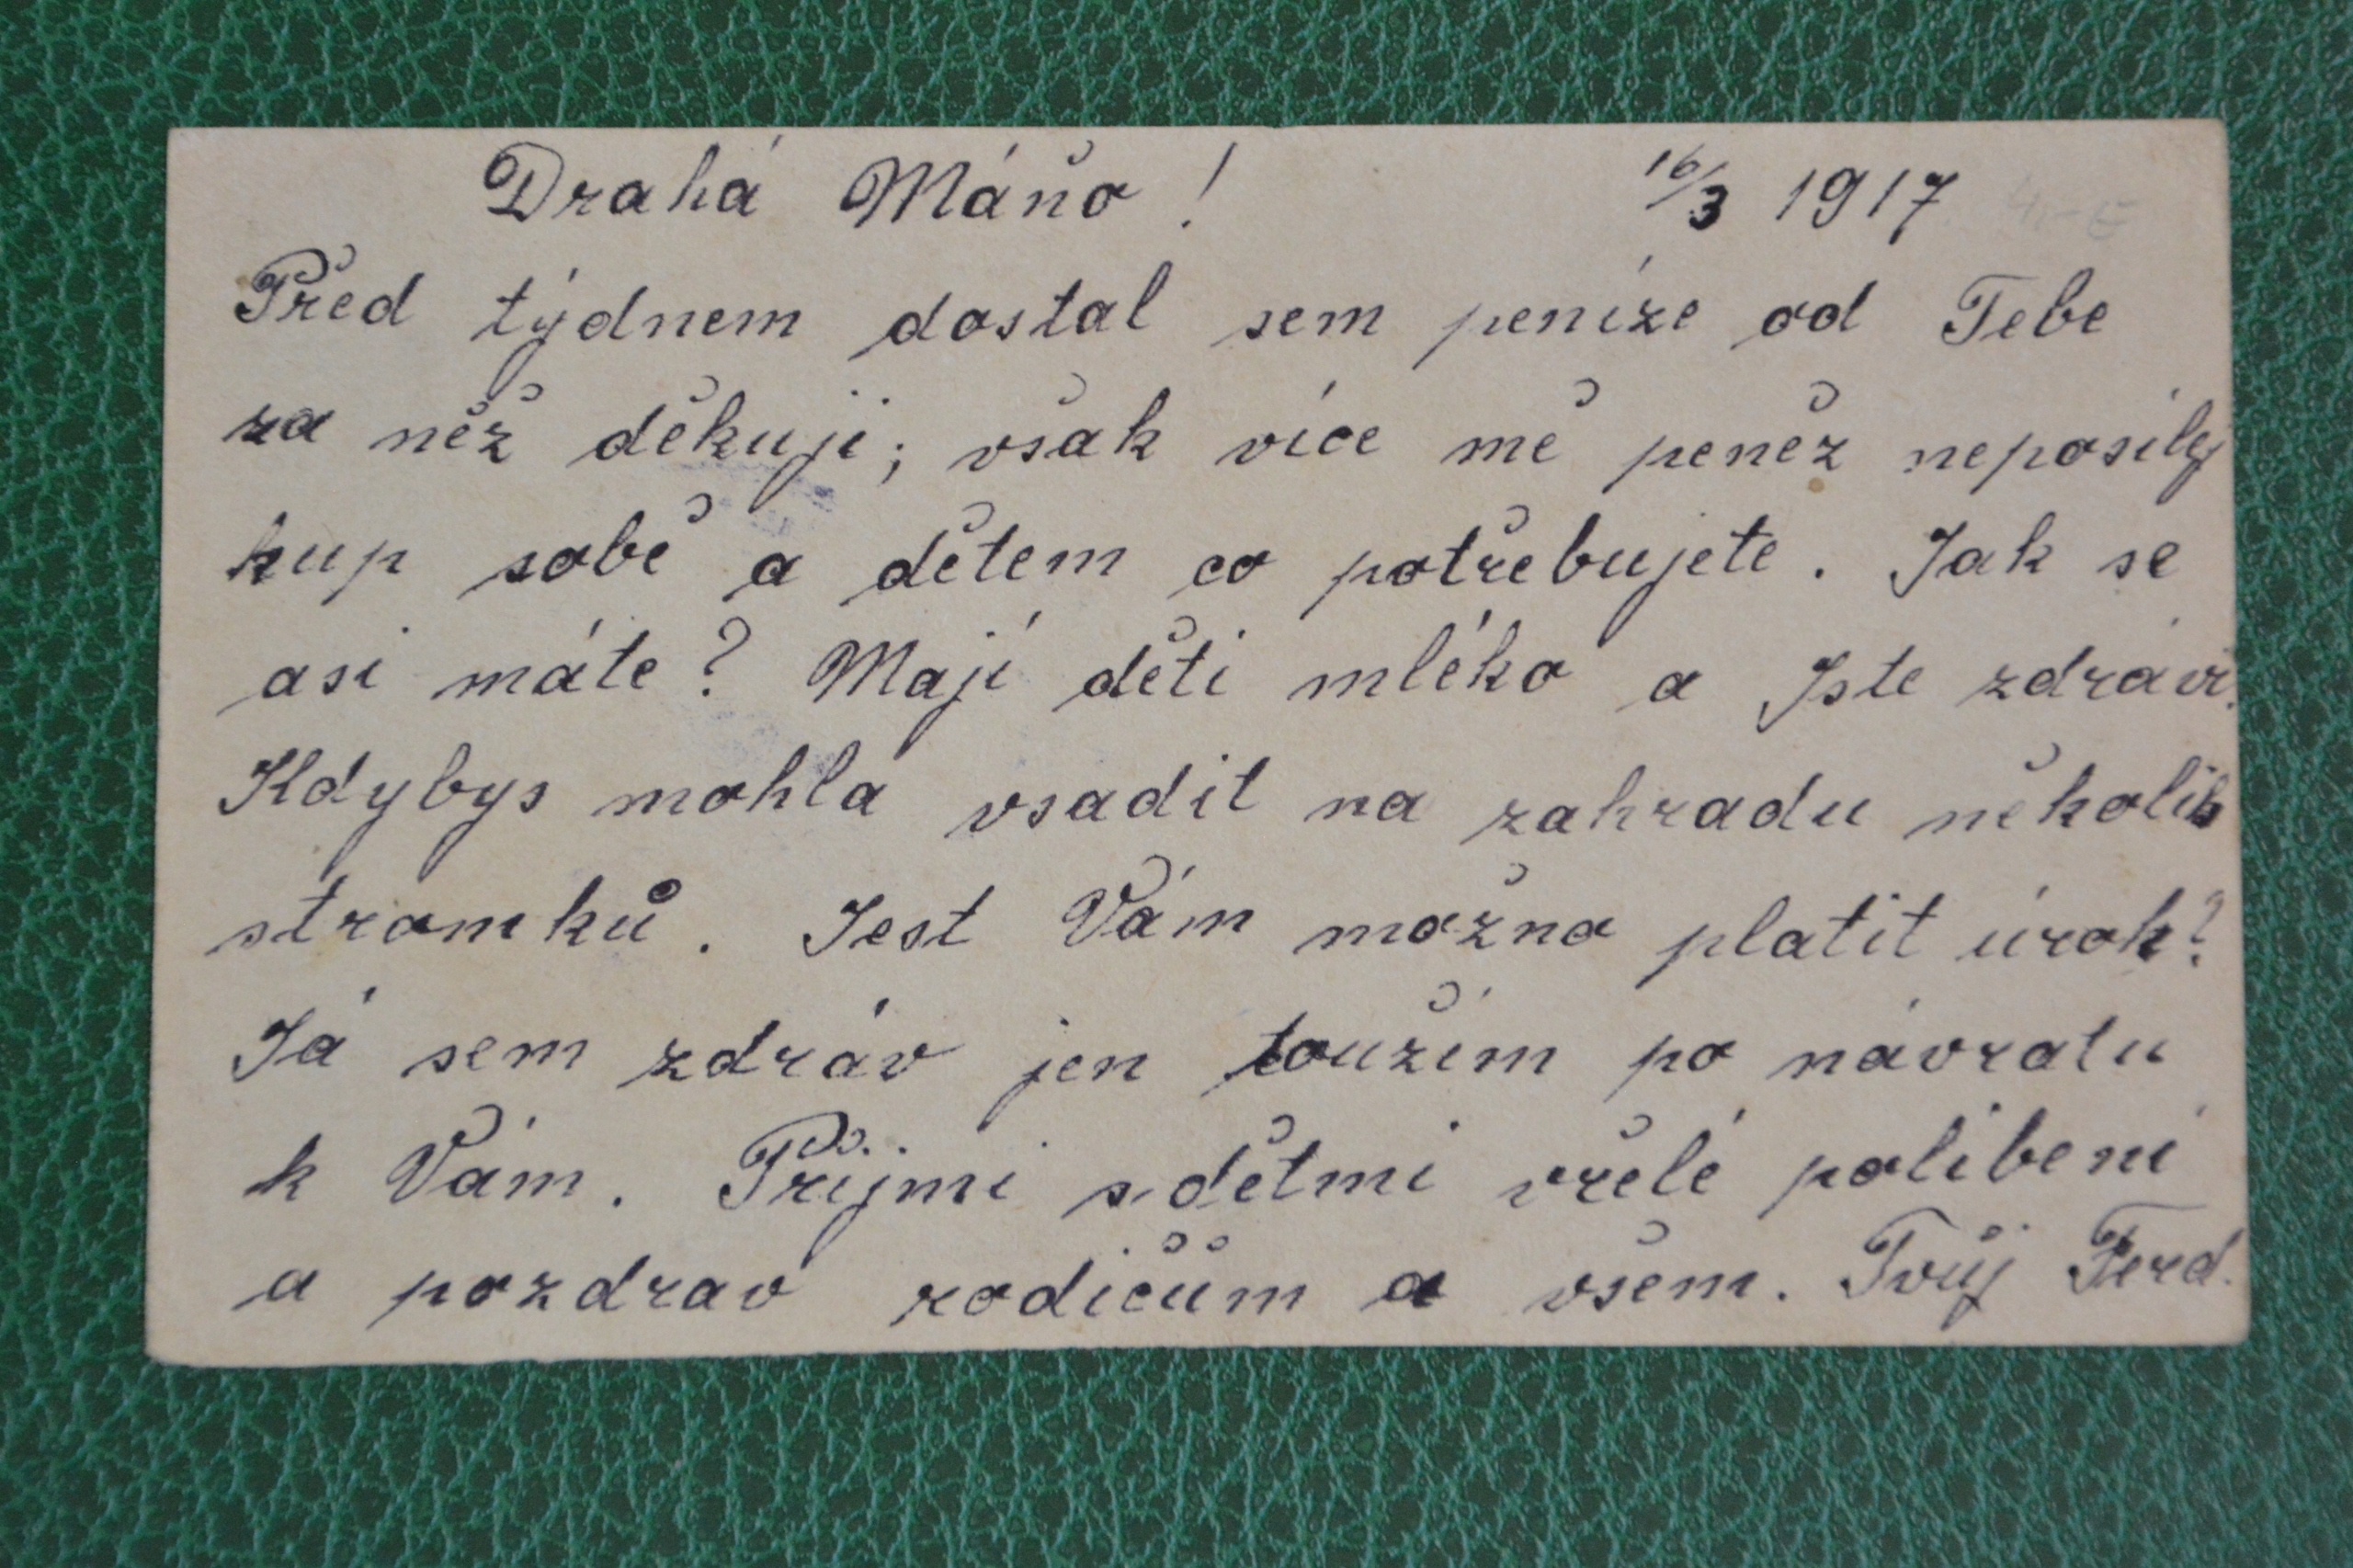 Drahá Máňo! 16/3 1917
Před týdnem dostal sem peníze od Tebe
za něž děkuji; však více mě peněz neposílej
kup sobě a dětem co potřebujete. Jak se
asi máte? Mají děti mléko a Jste zdrávi.
Kdybys mohla vsadit na zahradu několik
stromků. Jest Vám možno platit úrok?
Já sem zdráv jen toužím po návratu
k Vám. Přijmi s dětmi vřelé políbení
a pozdrav rodičům a všem. Tvůj Ferd.